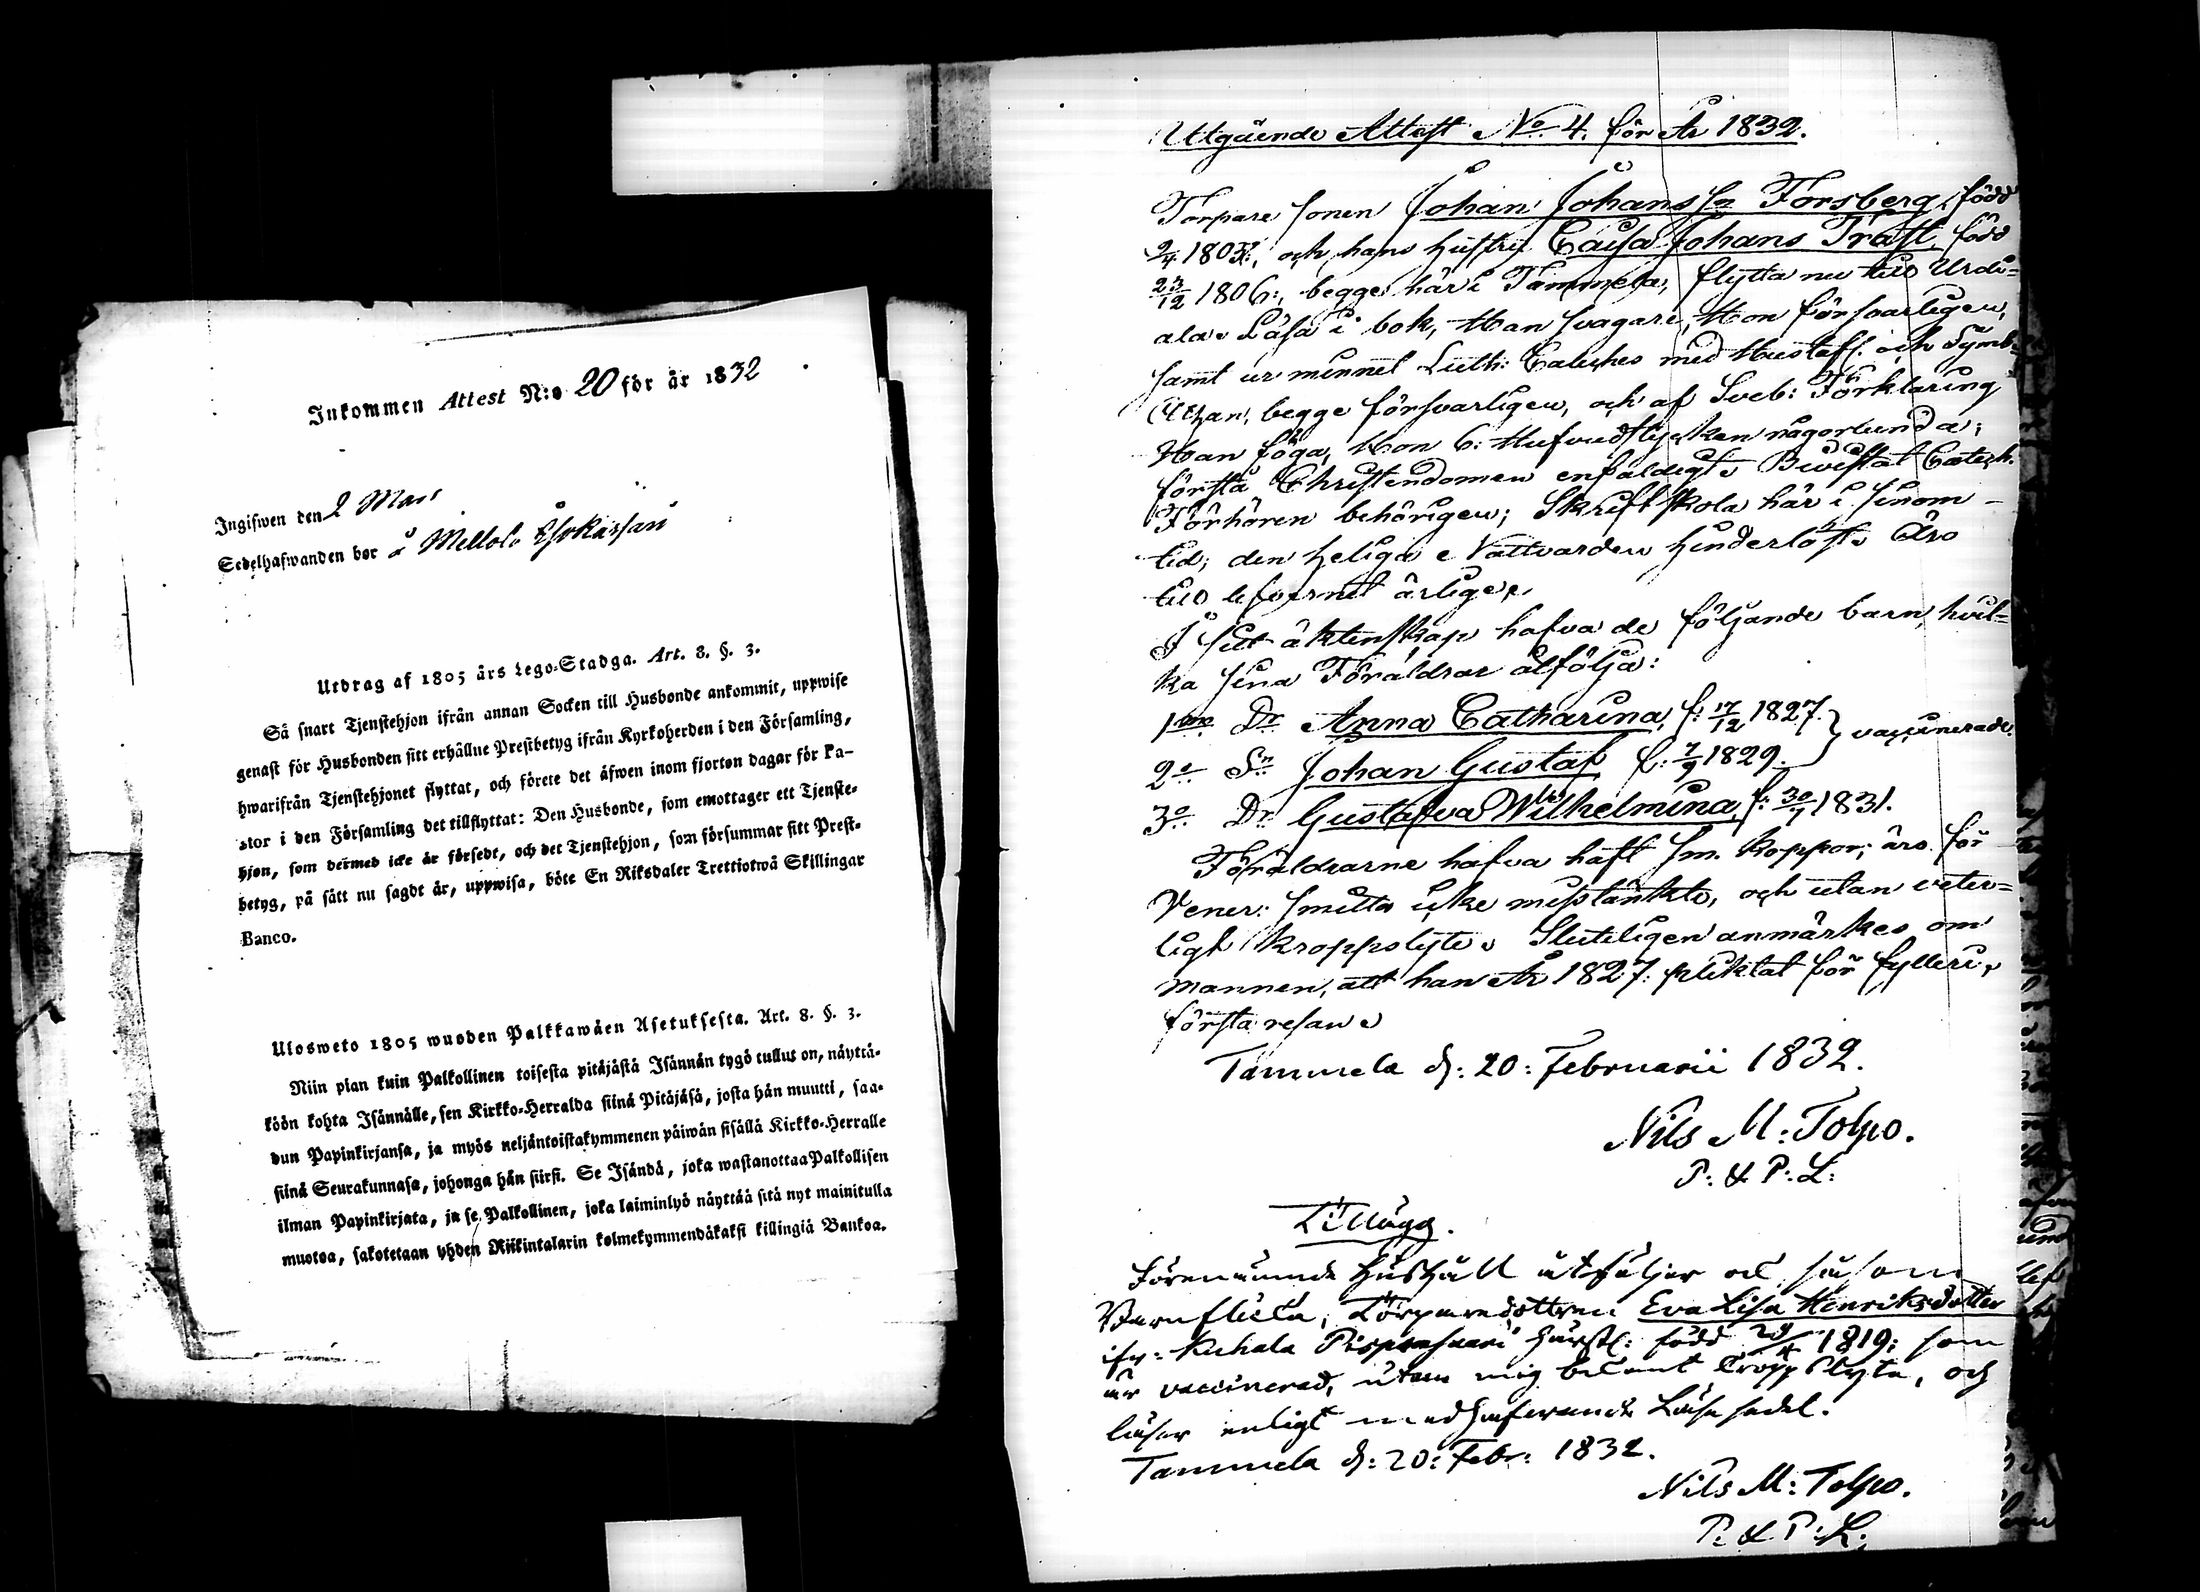 Inkommen Attest N:o 20 för år 1832
Ingifwen den 2 Mars
Sedelhafwanden bor å Mellola
Utdrag af 1805 års Lego-Stadga. Art. 8. §. 3.
Så snart Tjenstehjon ifrån annan Socken till Husbonde ankommit, uppwise
genast för Husbonden sitt erhållne Prestbetyg ifrån Kyrkoherden i den Församling,
hwarifrån Tjenstehjonet flyttat, och förete det äfwen inom fjorton dagar för Pa-
stor i den Församling det tillflyttat: Den Husbonde, som emottager ett Tjenste-
hjon, som dermed icke är försedt, och det Tjenstehjon, som försummar sitt Prest-
betyg, på sätt nu sagdt är, uppwisa, böte En Riksdaler Trettiotwå Skillingar
Banco.
Ulosweto 1805 wuoden Palkkawäen Asetuksesta. Art. 8. §. 3.
Niin pian kuin Palkollinen toisesta pitäjästä Isännän tygö tullut on, näyttä-
köön kohta Isännälle, sen Kirkko-Herralda siinä Pitäjäsä, josta hän muutti, saa-
dun Papinkirjansa, ja myös neljäntoistakymmenen päiwän sisällä Kirkko-Herralle
siinä Seurakunnasa, johonga hän siirsi. Se Isändä, joka wastanottaa Palkollisen
ilman Papinkirjata, ja se Palkollinen, joka laiminlyö näyttää sitä nyt mainitulla
muotoa, sakotetaan yhden Riikintalarin kolmekymmendäkaksi killingiä Bankoa.
Utgående Attest No. 4. för År 1832.
Torpare sonen Johan Johansson Forsberg, född
2/4 1803:, och hans hustru Caisa Johans Träst, född
23/12 1806:, begge här i Tammela, flytta nu till Urdi=
ala. Läsa i bok, Han svagare, Hon försvarligen,
samt ur minnet Luth: Cateches med Hustafl. och Symb:
Athan, begge försvarligen, och af Sveb: Förklaring
Han föga, Hon 6: Hufvudstycken någorlunda;
förstå Christendomen enfaldigt. Bevistat Catech.
Förhören behörigen; Skriftskola här i sinom
tid; den heliga Nattvarden hinderlöst. Äro
till lefvernet ärlige.
I sitt äktenskap hafva de följande barn, hvil=
ka sina Föräldrar åtfölja:
1mo Dr Anna Catharina, f: 17/12 1827. } vaccinerade.
2o Sn Johan Gustaf f: 7/9 1829.
3o Dr Gustafva Wilhelmina, f: 30/7 1831.
Föräldrarne hafva haft sm. koppor; äro för
Vener: smitta icke misstänkte, och utan veter=
ligt kroppslyte. Sluteligen anmärkes om
mannen, att han År 1827: pliktat för fylleri,
första resan.
Tammela d: 20: Februarii 1832.
Nils M: Tolpo.
P: & P: L:
Tillägg.
Förenämnde Hushåll åtföljer ock såsom
Barnflicka, Torparedottren Eva Lisa Henriksdotter
ifr: Kuhala född 29/4 1819: som
är vaccinerad, utan mig bekant kroppslyte, och
läser enligt medhafvande Läsesedel.
Tammela d: 20: Febr: 1832.
Nils M: Tolpo.
P: & P: L: